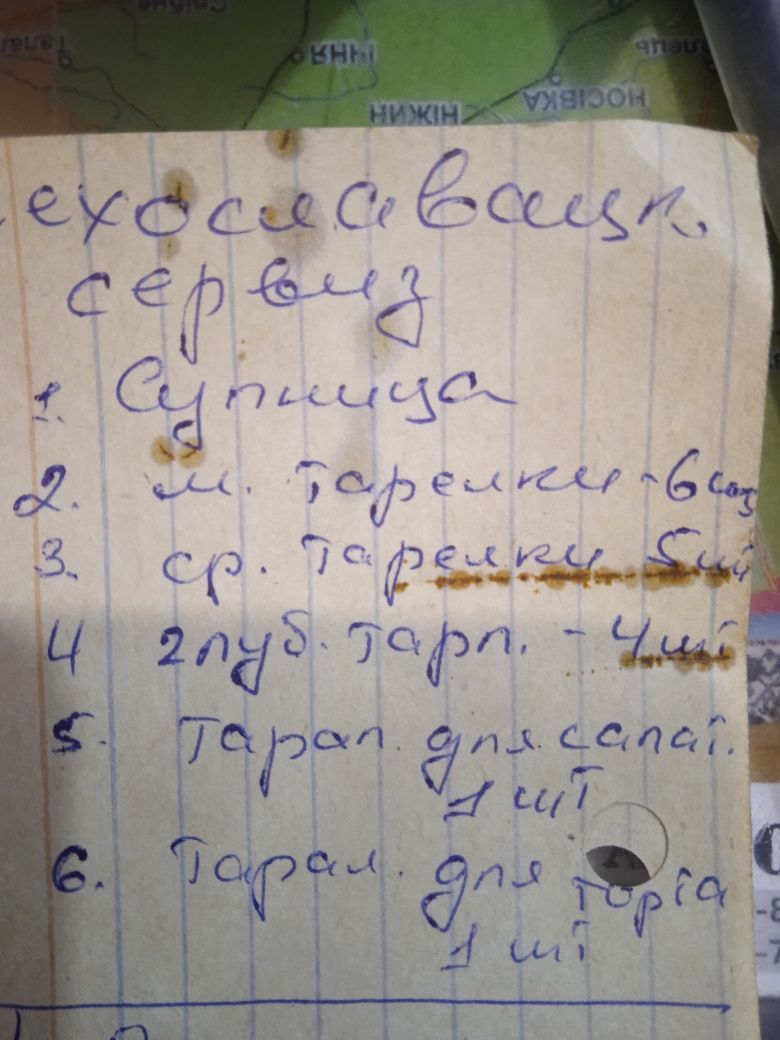 Срібне
Талал
ЯННІ
НІЖИН
НОСІВКА
ехославацк.
сервиз
1. Супница
2. м. тарелки - 6 шт
3. ср. тарелки 5 шт
4 глуб. тарл. - 4 шт
5. Тарал. для салат.
1 шт
6. Тарал. для торта
1 шт